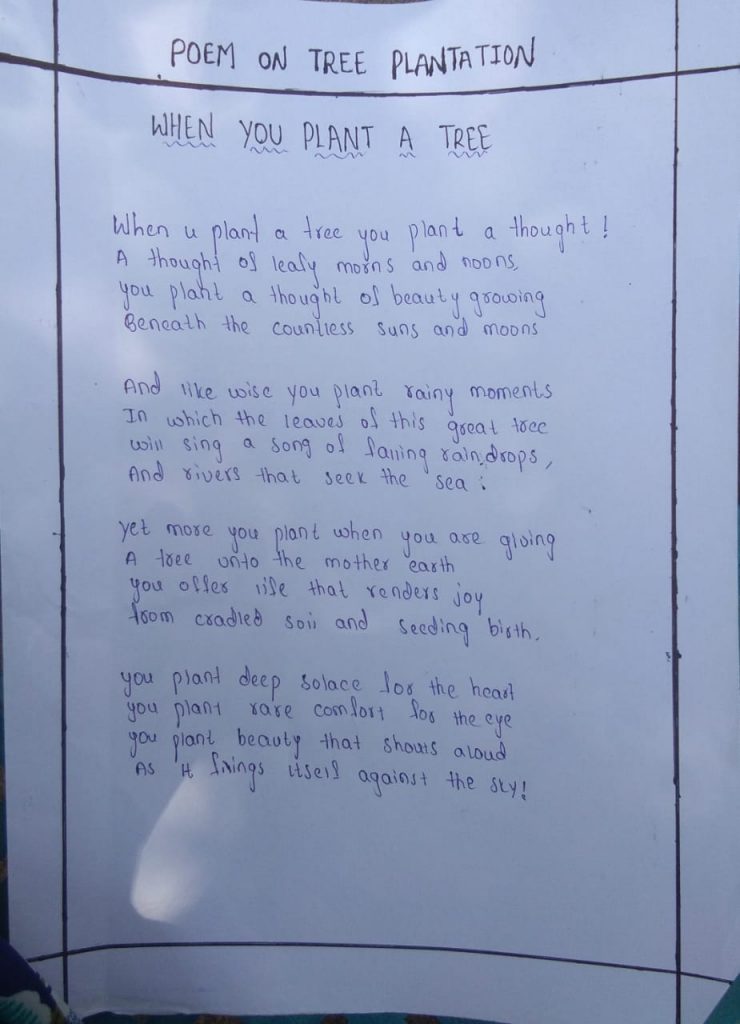 POEM ON TREE PLANTATION
WHEN YOU PLANT A TREE
When u plant a tree you plant a thought!
A thought of leafy morns and noons,
you plant a thought of beauty growing
Beneath the countless suns and moons
And like wise you plant rainy moments
In which the leaves of this great tree
will sing a song of falling raindrops,
And rivers that seek the sea :
yet more you plant when you are giving
A tree unto the mother earth
you offer life that renders joy
from cradled soil and seeding birth.
you plant deep solace for the heart
you plant rare comfort for the eye
you plant beauty that shouts aloud
As it fnings itself against the sky!